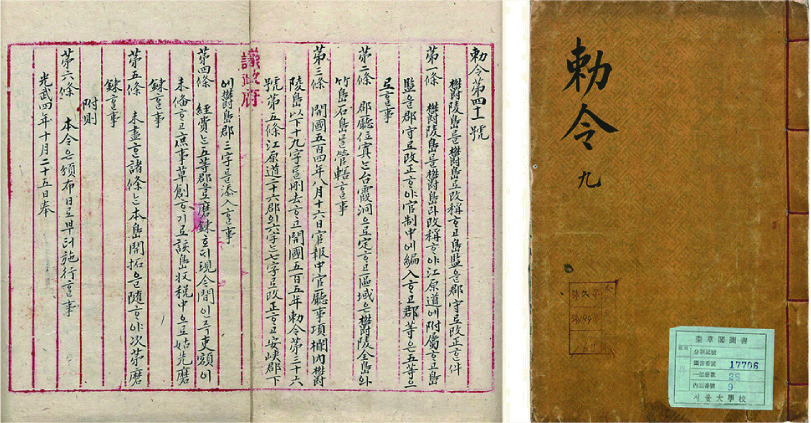 勅令第四十一號
鬱陵島를鬱島로改稱ᄒᆞ고島監을郡守로改正ᄒᆞᆫ件
第一條 鬱陵島를鬱島라改稱ᄒᆞ야江原道에附屬ᄒᆞ고島
監을郡守로改正ᄒᆞ야官制中에編入ᄒᆞ고郡等은五等으
로ᄒᆞᆯ事
第二條 郡廳位寘는台霞洞으로定ᄒᆞ고區域은鬱陵全島와
竹島石島를管轄ᄒᆞᆯ事
第三條 開國五百四年八月十六日官報中官廳事項欄內鬱
陵島以下十九字를刪去ᄒᆞ고開國五百五年勅令第三十六
號第五條江原道二十六郡의六字는七字로改正ᄒᆞ고安峽郡下
議政府
에鬱島郡三字를添入ᄒᆞᆯ事
第四條 經費는五等郡으로磨鍊호ᄃᆡ現今間인즉吏額이
未備ᄒᆞ고庶事草創ᄒᆞ기로該島收稅中으로姑先磨
鍊ᄒᆞᆯ事
第五條 未盡ᄒᆞᆫ諸條는本島開拓을隨ᄒᆞ야次第磨
鍊ᄒᆞᆯ事
附則
第六條 本令은頒布日로부터施行ᄒᆞᆯ事
光武四年十月二十五日奉
勅令 九
奎章閣圖書
17706
28
9
서울大學校